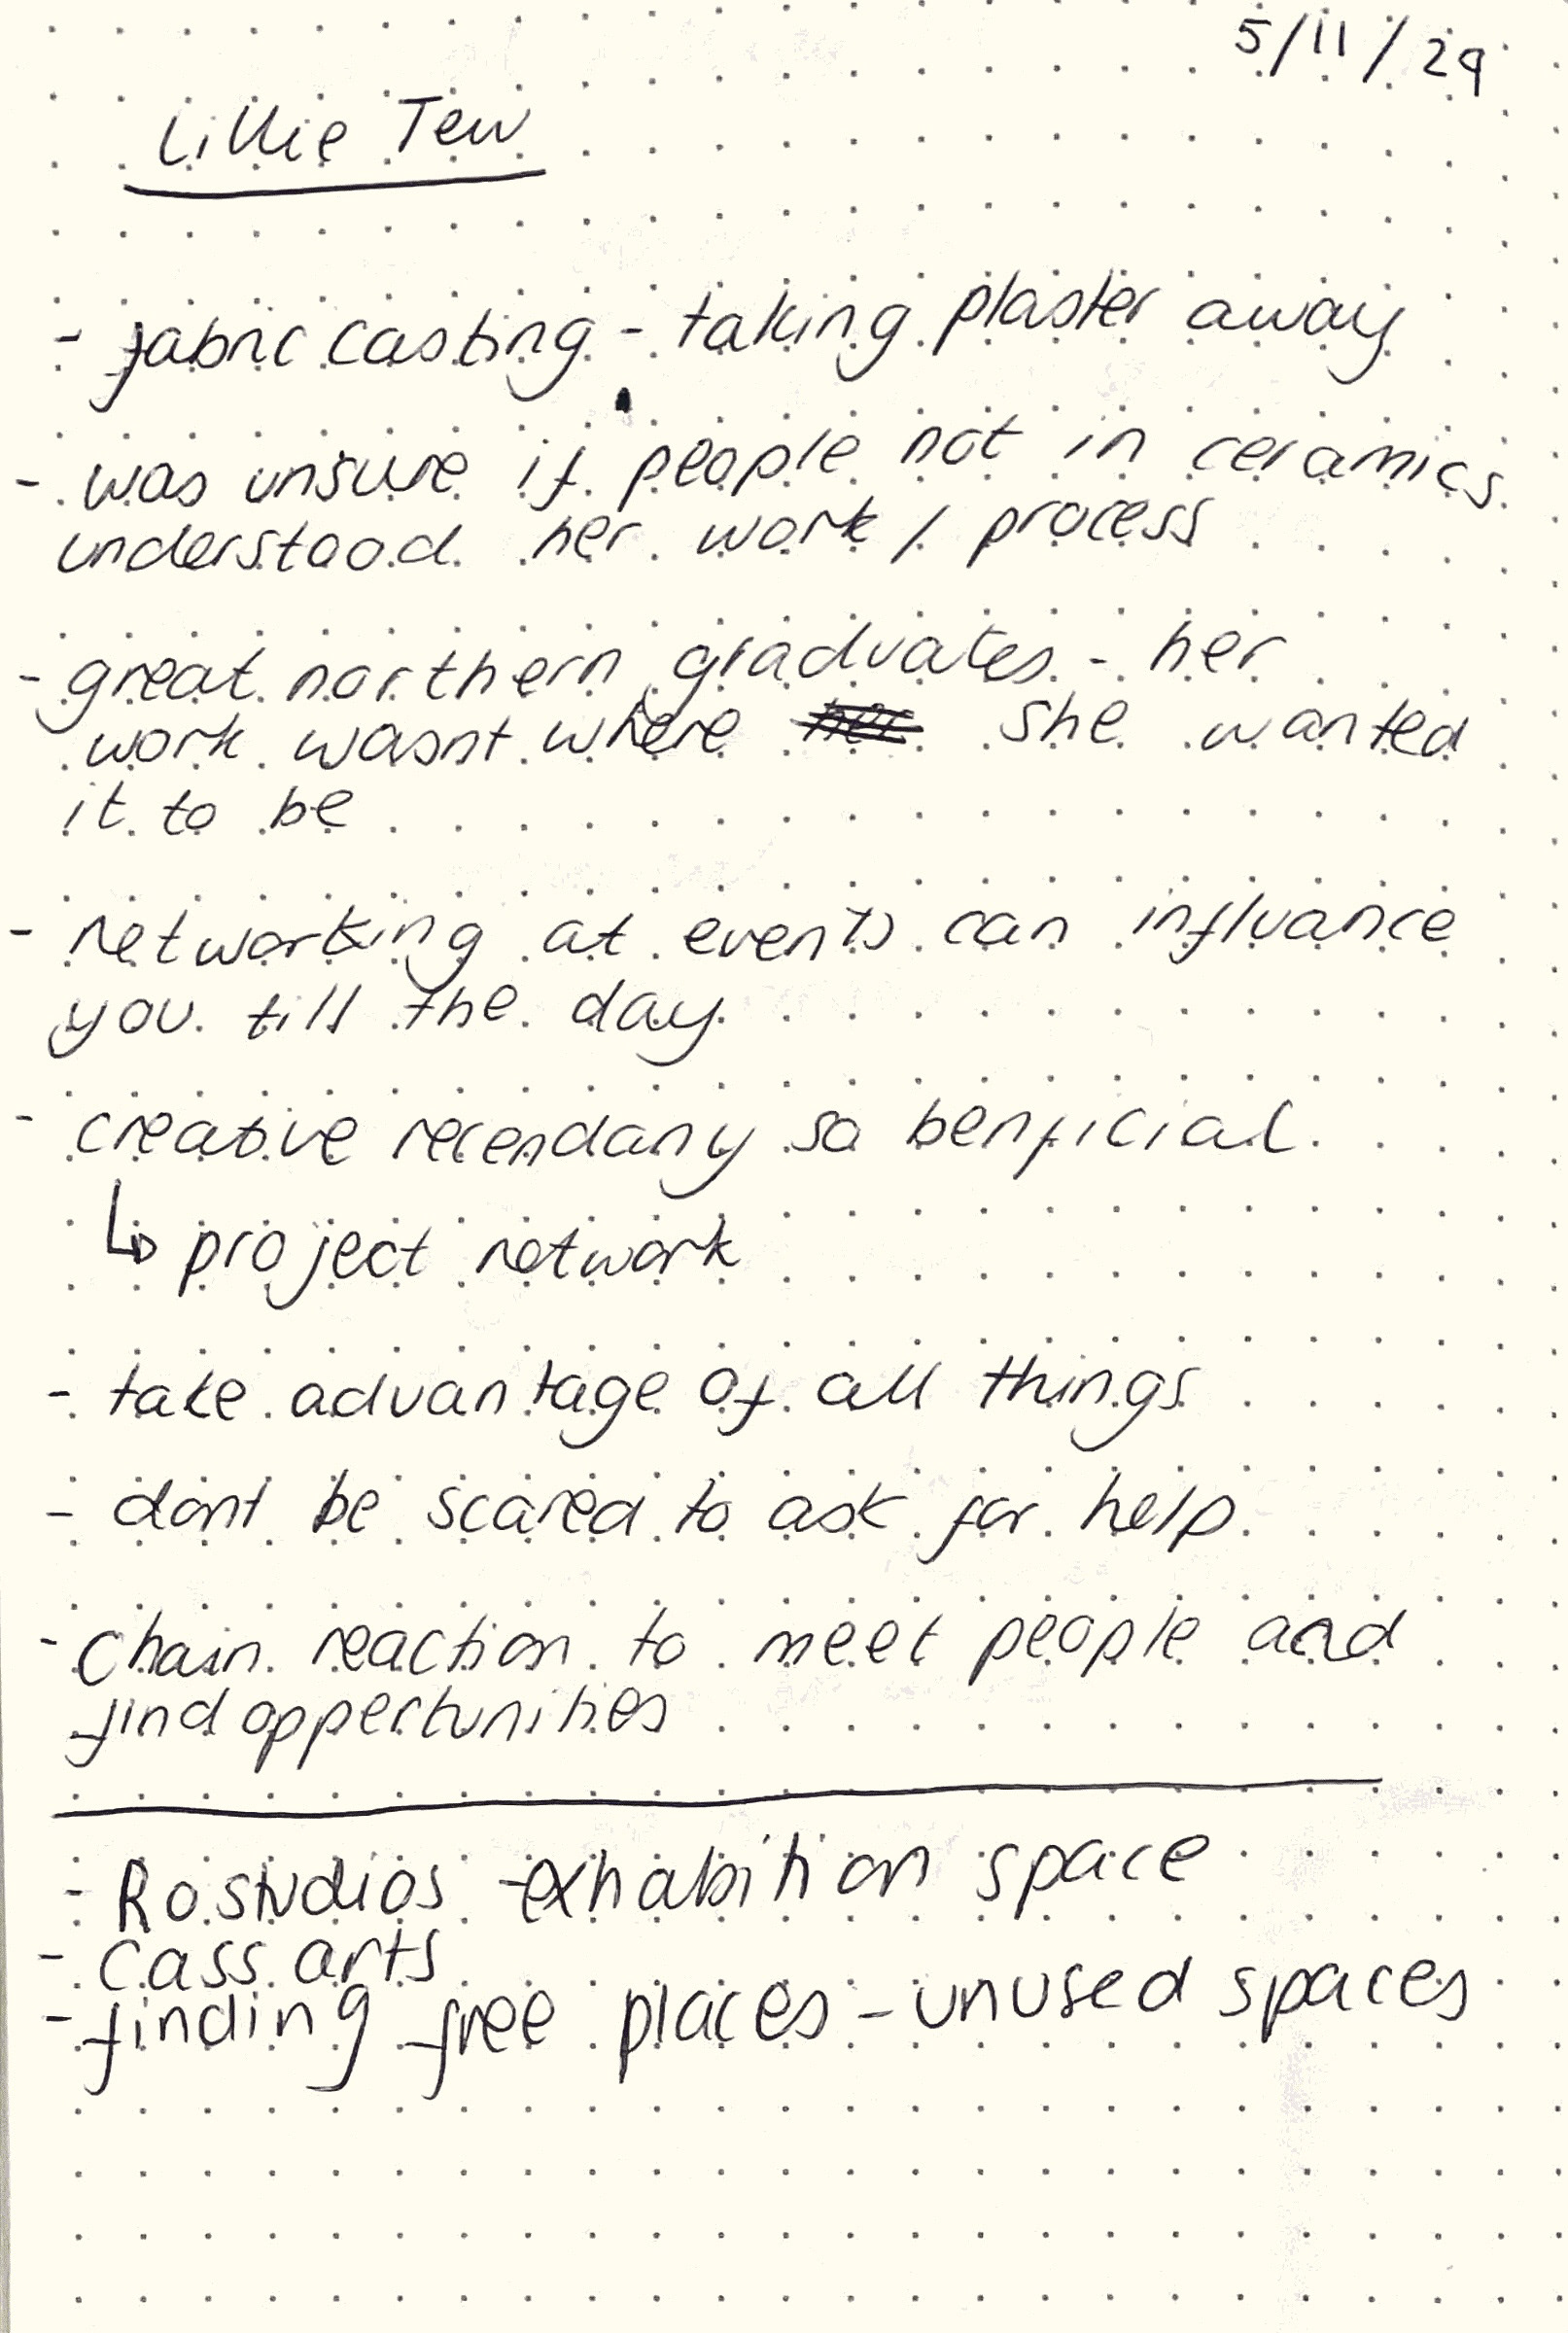 5/11/29
Lillie Tew
- fabric casting - taking plaster away
- was unsure if people not in ceramics
understood her work / process
- great northern graduates - her
work wasnt where her she wanted
it to be
- networking at events can influance
you till the day
- creative recendany so benficial
↳ project network
- take advantage of all things
- dont be scared to ask for help
- chain reaction to meet people and
find oppertunities
- Ro studios - exhabition space
- cass arts
- finding free places - unused spaces